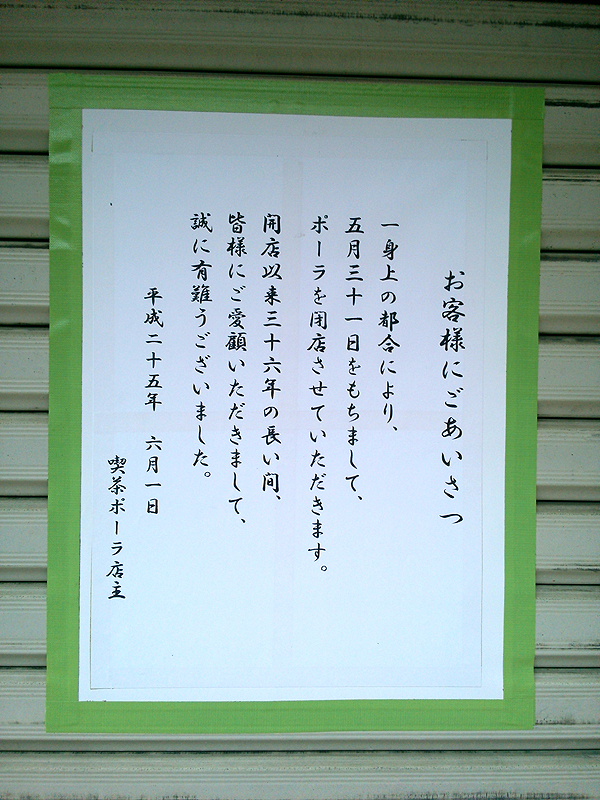 お客様にごあいさつ
一身上の都合により、
五月三十一日をもちまして、
ポーラを閉店させていただきます。
開店以来三十六年の長い間、
皆様にご愛顧いただきまして、
誠に有難うございました。
平成二十五年 六月一日
喫茶ポーラ店主